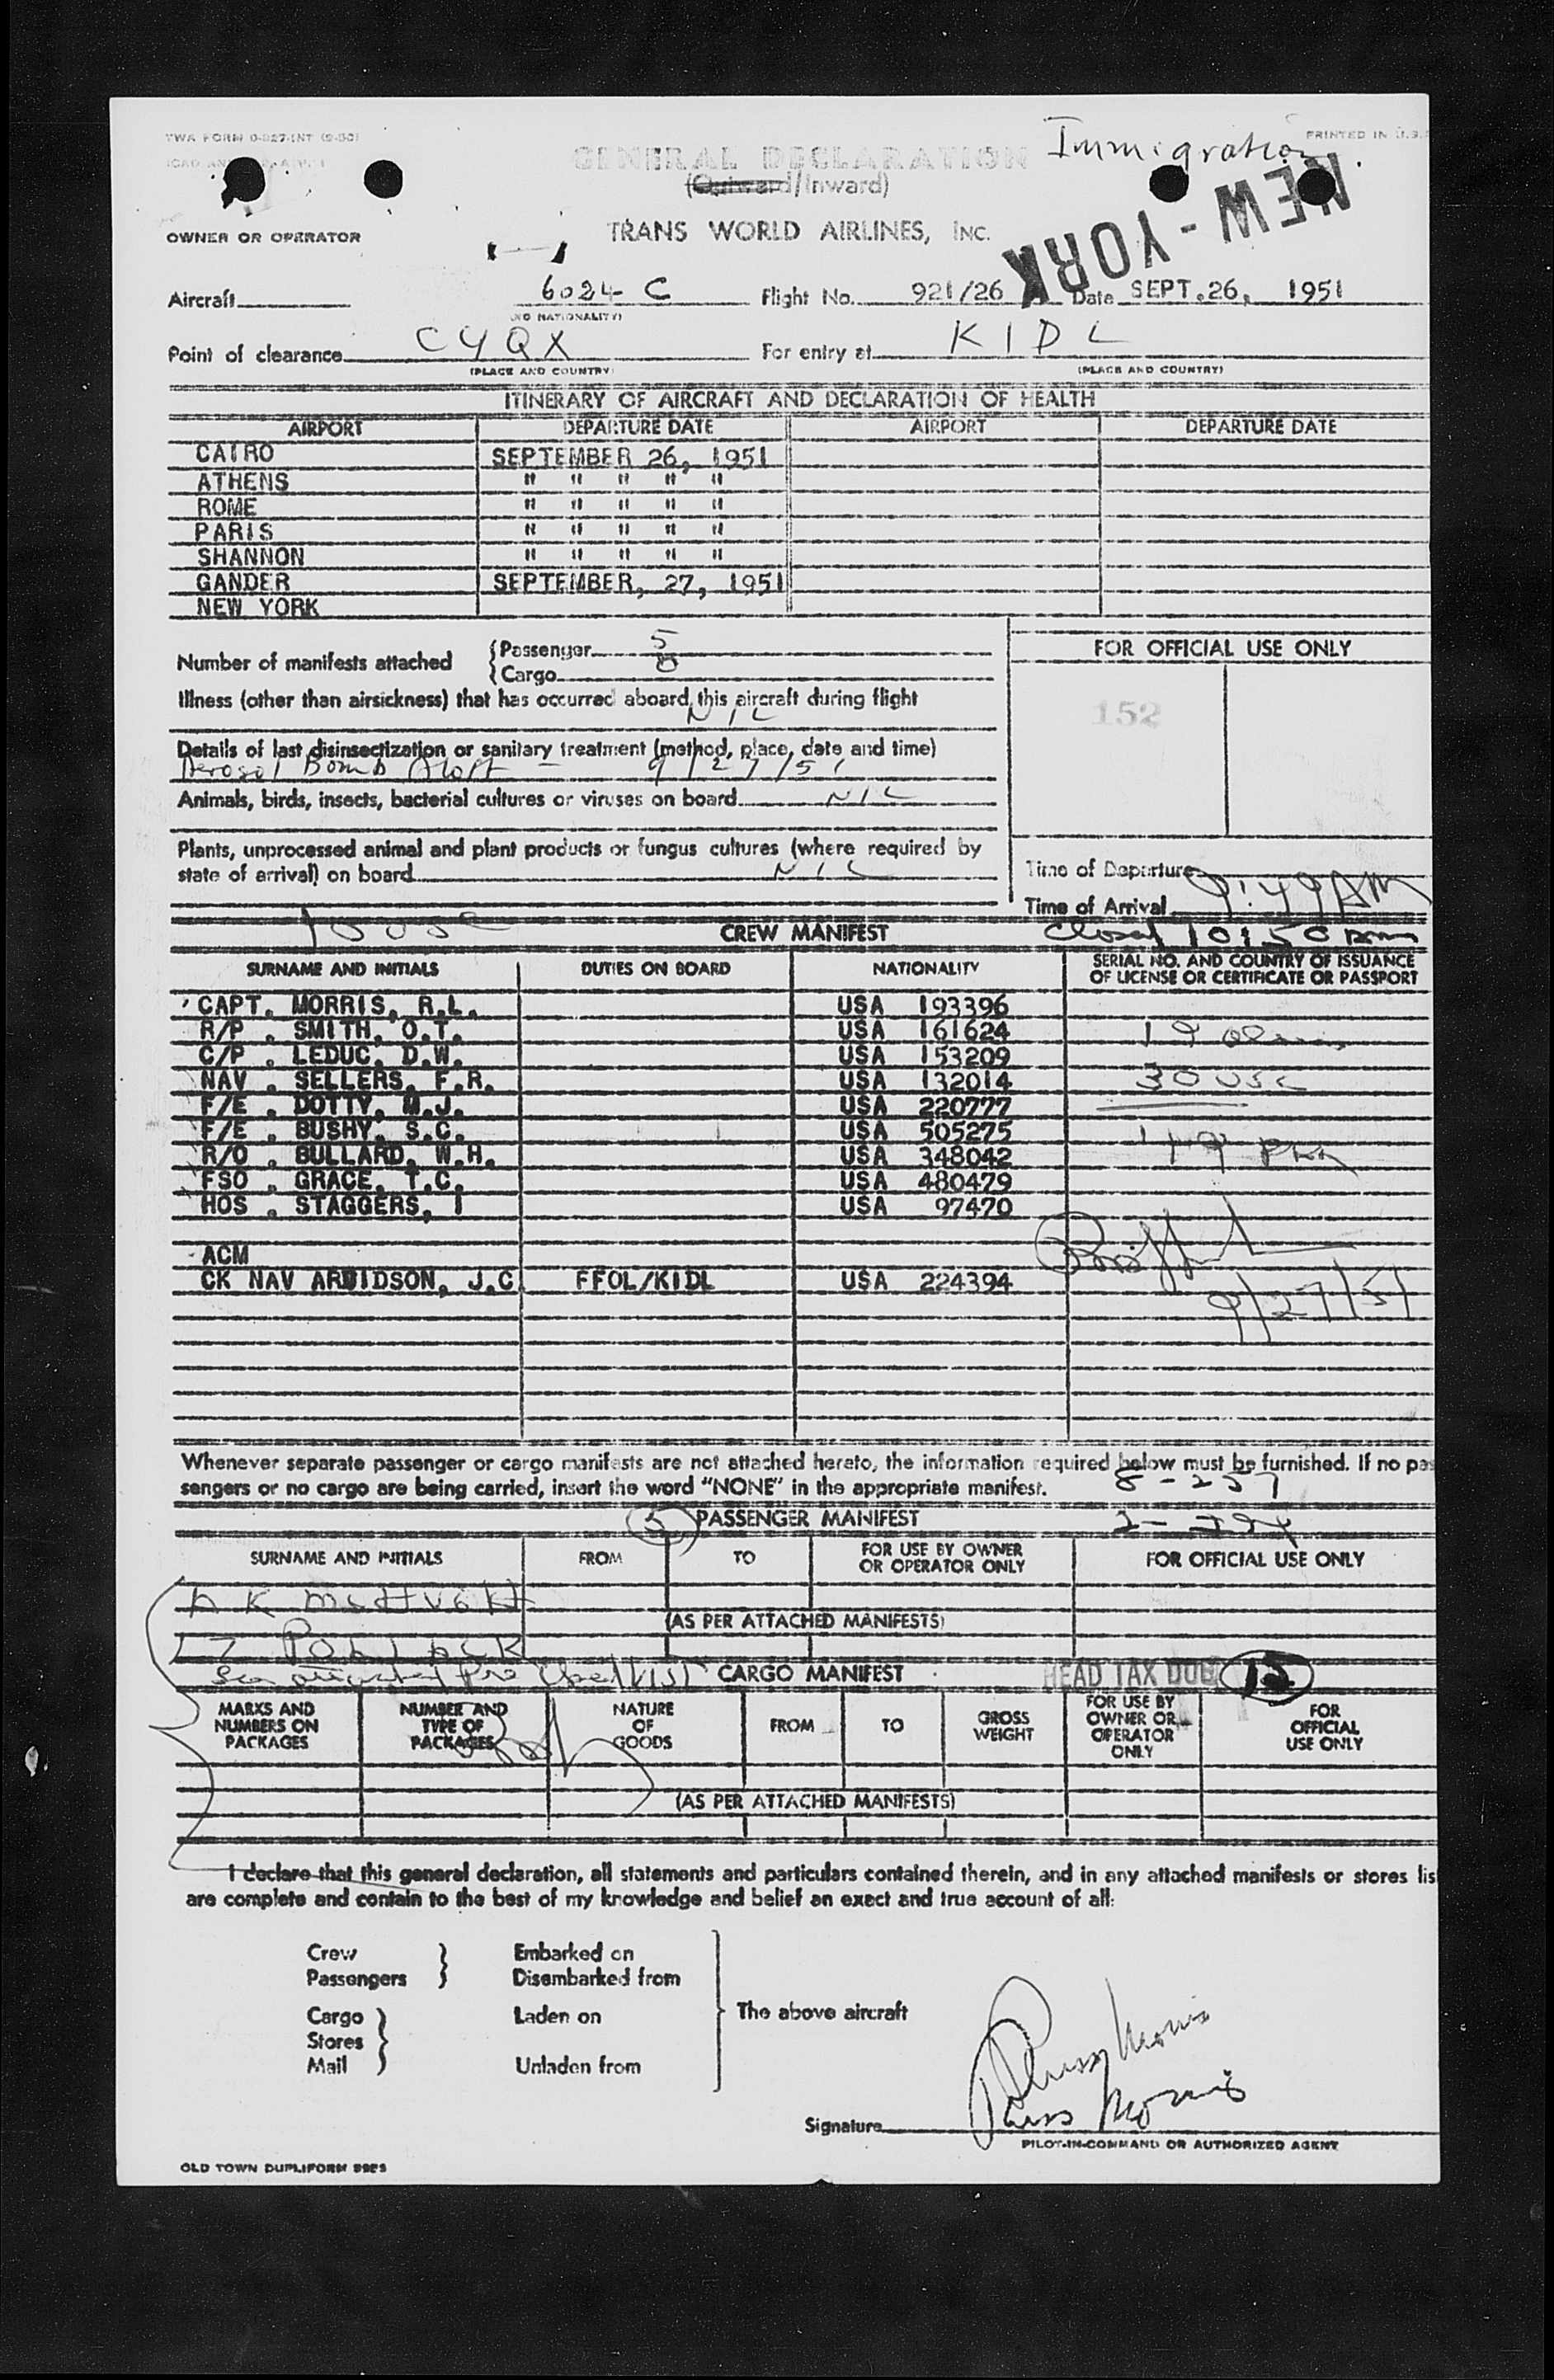 TWA FORM 0-027-INT (9-50)
PRINTED IN U.S.
Immigration
GENERAL DECLARATION
(Outward/Inward)
NEW-YORK
OWNER OR OPERATOR TRANS WORLD AIRLINES, INC.
Aircraft 6024 C Flight No. 921/26 Date SEPT.26, 1951
Point of clearance CYQX For entry at KIDL
(PLACE AND COUNTRY) (PLACE AND COUNTRY)
ITINERARY OF AIRCRAFT AND DECLARATION OF HEALTH
AIRPORT DEPARTURE DATE AIRPORT DEPARTURE DATE
CAIRO SEPTEMBER 26, 1951
ATHENS " " " " "
ROME " " " " "
PARIS " " " " "
SHANNON " " " " "
GANDER SEPTEMBER, 27, 1951
NEW YORK
Number of manifests attached { Passenger 5
{ Cargo 8
FOR OFFICIAL USE ONLY
152
Illness (other than airsickness) that has occurred aboard this aircraft during flight
NIL
Details of last disinsectization or sanitary treatment (method, place, date and time)
Aerosol Bomb Aloft - 9/27/51
Animals, birds, insects, bacterial cultures or viruses on board NIL
Plants, unprocessed animal and plant products or fungus cultures (where required by
state of arrival) on board NIL
Time of Departure
Time of Arrival 9:49 AM
10 USC
CREW MANIFEST
Closed 10:50 am
SURNAME AND INITIALS DUTIES ON BOARD NATIONALITY SERIAL NO. AND COUNTRY OF ISSUANCE
OF LICENSE OR CERTIFICATE OR PASSPORT
CAPT. MORRIS, R.L. USA 193396
R/P . SMITH, O.T. USA 161624
19 aliens
C/P . LEDUC, D.W. USA 153209
NAV . SELLERS, F.R. USA 132014
30 USC
F/E . DOTTY, M.J. USA 220777
F/E . BUSHY, S.C. USA 505275
R/O . BULLARD, W.H. USA 348042
FSO . GRACE, T.C. USA 480479
HOS . STAGGERS, I USA 97470
ACM
CK NAV ARVIDSON, J.C FFOL/KIDL USA 224394
9/27/51
Whenever separate passenger or cargo manifests are not attached hereto, the information required below must be furnished. If no pas
sengers or no cargo are being carried, insert the word "NONE" in the appropriate manifest.
8-257
5 PASSENGER MANIFEST
SURNAME AND INITIALS FROM TO FOR USE BY OWNER
OR OPERATOR ONLY FOR OFFICIAL USE ONLY
(AS PER ATTACHED MANIFESTS)
CARGO MANIFEST
HEAD TAX DUE 15
MARKS AND
NUMBERS ON
PACKAGES NUMBER AND
TYPE OF
PACKAGES NATURE
OF
GOODS FROM TO GROSS
WEIGHT FOR USE BY
OWNER OR
OPERATOR
ONLY FOR
OFFICIAL
USE ONLY
(AS PER ATTACHED MANIFESTS)
I declare that this general declaration, all statements and particulars contained therein, and in any attached manifests or stores list
are complete and contain to the best of my knowledge and belief an exact and true account of all:
Crew Embarked on
Passengers Disembarked from
Cargo Laden on The above aircraft
Stores
Mail Unladen from
Russ Morris
Signature Russ Morris
PILOT-IN-COMMAND OR AUTHORIZED AGENT
OLD TOWN DUPLIFORM